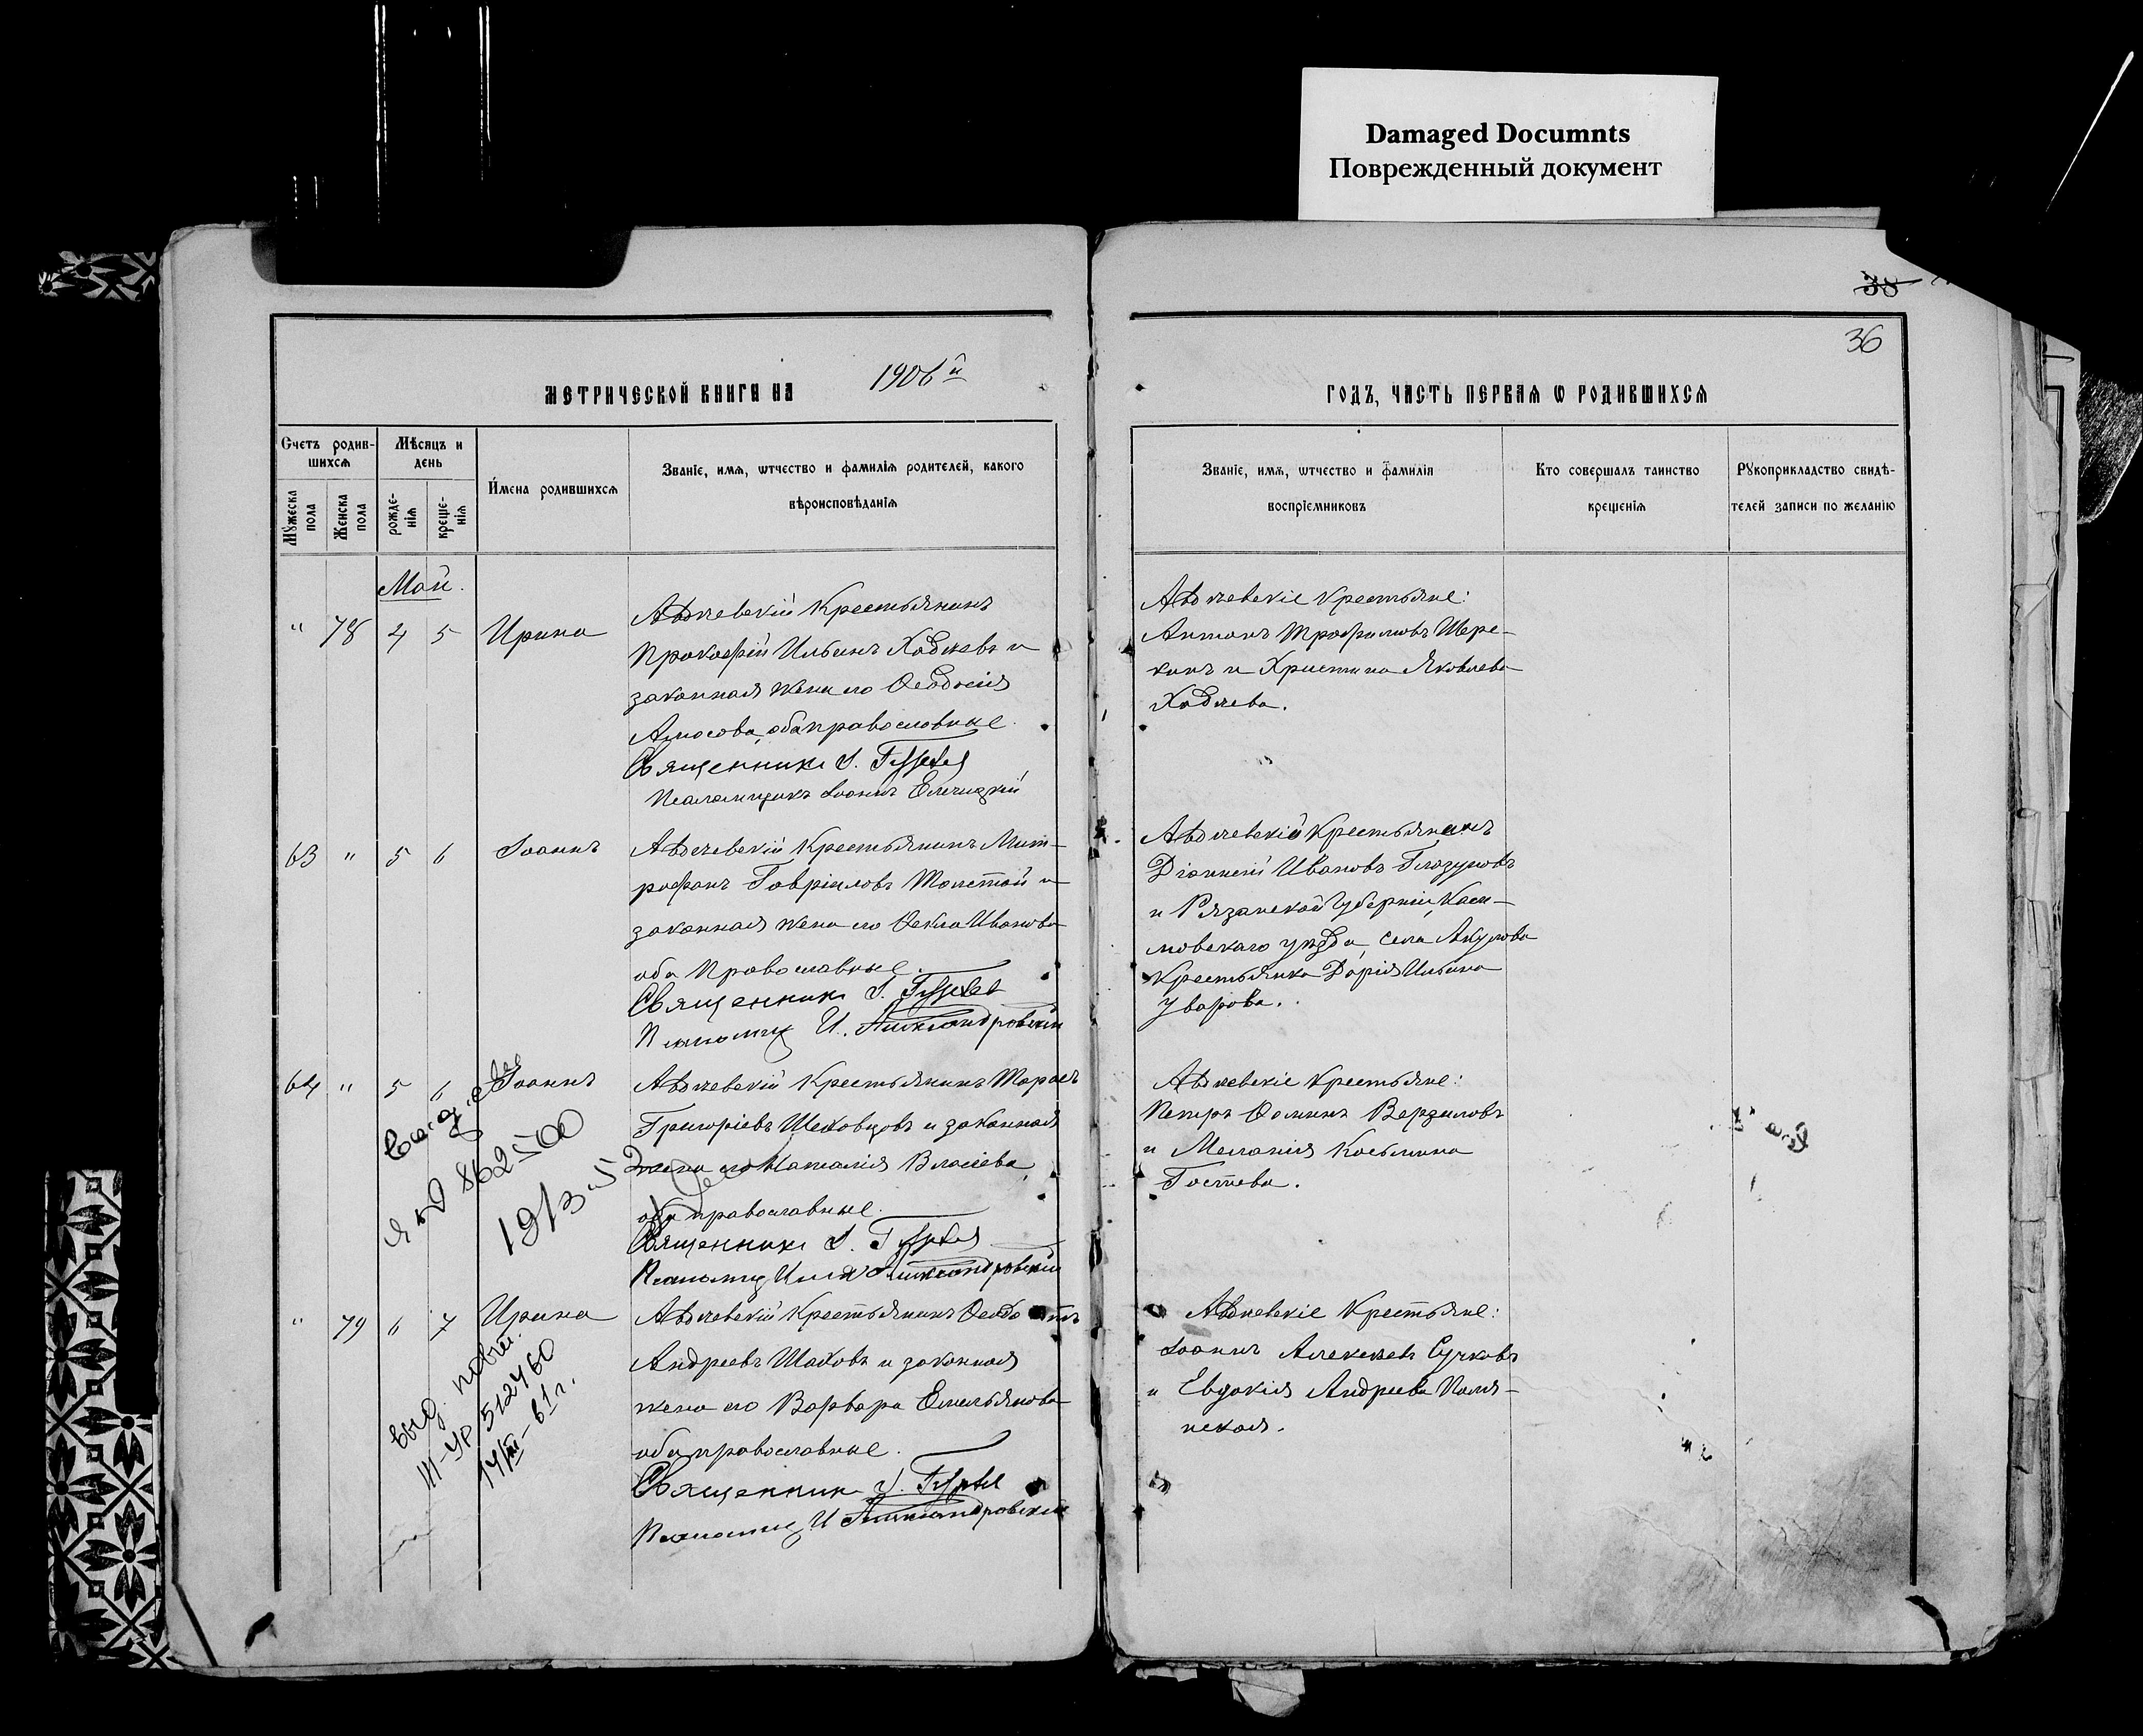 Damaged Documnts
Поврежденный документ
38
36
МЕТРИЧЕСКОЙ КНИГИ НА 1906й
ГОДЪ, ЧАСТЬ ПЕРВАЯ Ѡ РОДИВШИХСЯ
Счетъ родив-
шихся
Мужеска пола
Женска пола
Мѣсяцъ и
день
рожде-
нія
креще-
нія
Имена родившихся
Званіе, имя, ѡтчество и фамилія родителей, какого
вѣроисповѣданія
Званіе, имя, ѡтчество и фамилія
воспріемниковъ
Кто совершалъ таинство
крещенія
Рукоприкладство свидѣ-
телей записи по желанію
Май.
" 78 4 5 Ирина
Крестьянинъ
Прокофій Ильинъ и
законная жена его Ѳеодосія
Амосова, оба православные.
Священникъ І.
Псаломщикъ Іоаннъ
крестьяне:
Антонъ Трофимовъ Шере-
кинъ и Христина Яковлева
63 " 5 6 Іоаннъ
Крестьянинъ Мит-
рофанъ Гавріиловъ Толстой и
законная жена его Ѳекла Иванова
оба Православные.
Священникъ І.
Псаломщ И. Александровскій
Крестьянинъ
Діонисій Ивановъ Глазуновъ
и Рязанской Губерніи, Каси-
мовскаго уѣзда, села Акулова
Крестьянка Дарія Ильина
Уварова.
64 " 5 6 Іоаннъ
Крестьянинъ Тарасъ
Григоріевъ Шеховцовъ и законная
жена его Наталія Власіева,
оба православные.
Священникъ І.
Псаломщ Илія Александровскій
Крестьяне:
Петръ Ѳоминъ Верзиловъ
и Меланія Косьмина
Гостева.
862500
19/3-52
" 79 6 7 Ирина
Крестьянинъ
Андреевъ Шаховъ и законная
жена его Варвара Емельянова
оба православные.
Священникъ І.
Псаломщ И Александровскій
Крестьяне:
Іоаннъ Алексѣевъ Сучковъ
и Евдокія Андреева Поля-
нская.
выд. повт.
III-УР 512460
14/III-61г.